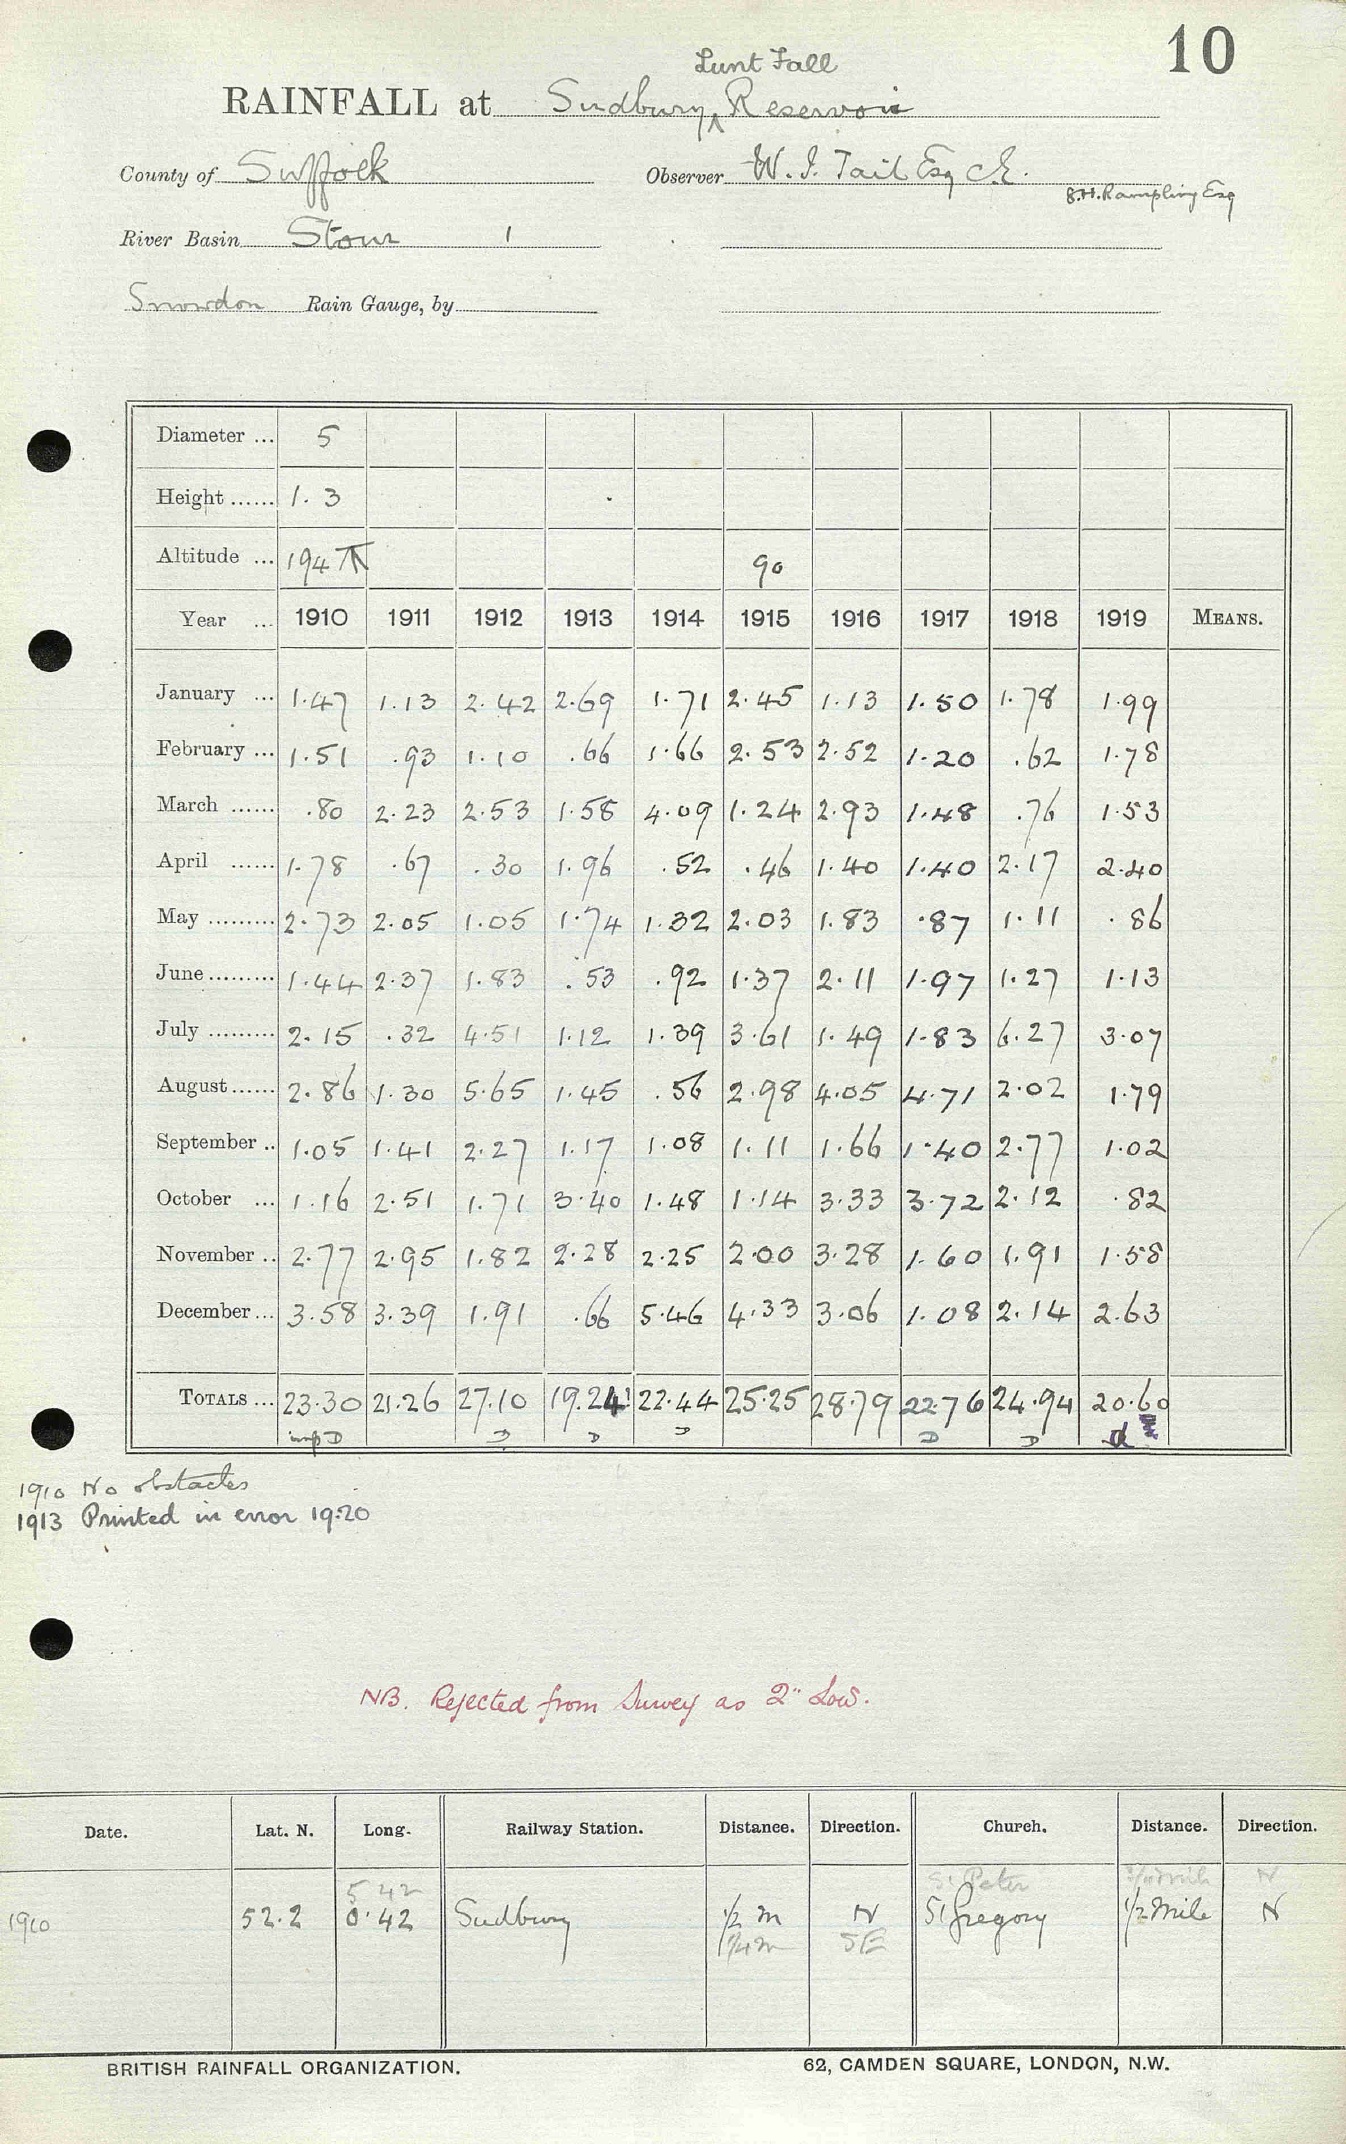 10
Lunt Fall
RAINFALL at Sudbury Reservoir
County of Suffolk Observer W. I. Tait Esq C.E.
S.H. Rampling Esq
River Basin Stour 1
Snowdon Rain Gauge, by
Diameter ... 5
Height ...... 1.3
Altitude ... 194 90
Year ... 1910 1911 1912 1913 1914 1915 1916 1917 1918 1919 MEANS.
January ... 1.47 1.13 2.42 2.69 1.71 2.45 1.13 1.50 1.78 1.99
February ... 1.51 .93 1.10 .66 1.66 2.53 2.52 1.20 .62 1.78
March ...... .80 2.23 2.53 1.58 4.09 1.24 2.93 1.48 .76 1.53
April ...... 1.78 .67 .30 1.96 .52 .46 1.40 1.40 2.17 2.40
May ......... 2.73 2.05 1.05 1.74 1.32 2.03 1.83 .87 1.11 .86
June ......... 1.44 2.37 1.83 .53 .92 1.37 2.11 1.97 1.27 1.13
July ......... 2.15 .32 4.51 1.12 1.39 3.61 1.49 1.83 6.27 3.07
August ...... 2.86 1.30 5.65 1.45 .56 2.98 4.05 4.71 2.02 1.79
September .. 1.05 1.41 2.27 1.17 1.08 1.11 1.66 1.40 2.77 1.02
October ... 1.16 2.51 1.71 3.40 1.48 1.14 3.33 3.72 2.12 .82
November .. 2.77 2.95 1.82 2.28 2.25 2.00 3.28 1.60 1.91 1.58
December ... 3.58 3.39 1.91 .66 5.46 4.33 3.06 1.08 2.14 2.63
TOTALS ... 23.30 21.26 27.10 19.24 22.44 25.25 28.79 22.76 24.94 20.60
D D D D D D d
1910 No obstacles
1913 Printed in error 19.20
NB. Rejected from Survey as 2" Low.
Date. Lat. N. Long. Railway Station. Distance. Direction. Church. Distance. Direction.
5 42 St Peter N
1910 52.2 0.42 Sudbury 1/2 m N St Gregory 1/2 Mile N
1/4 m SE
BRITISH RAINFALL ORGANIZATION. 62, CAMDEN SQUARE, LONDON, N.W.